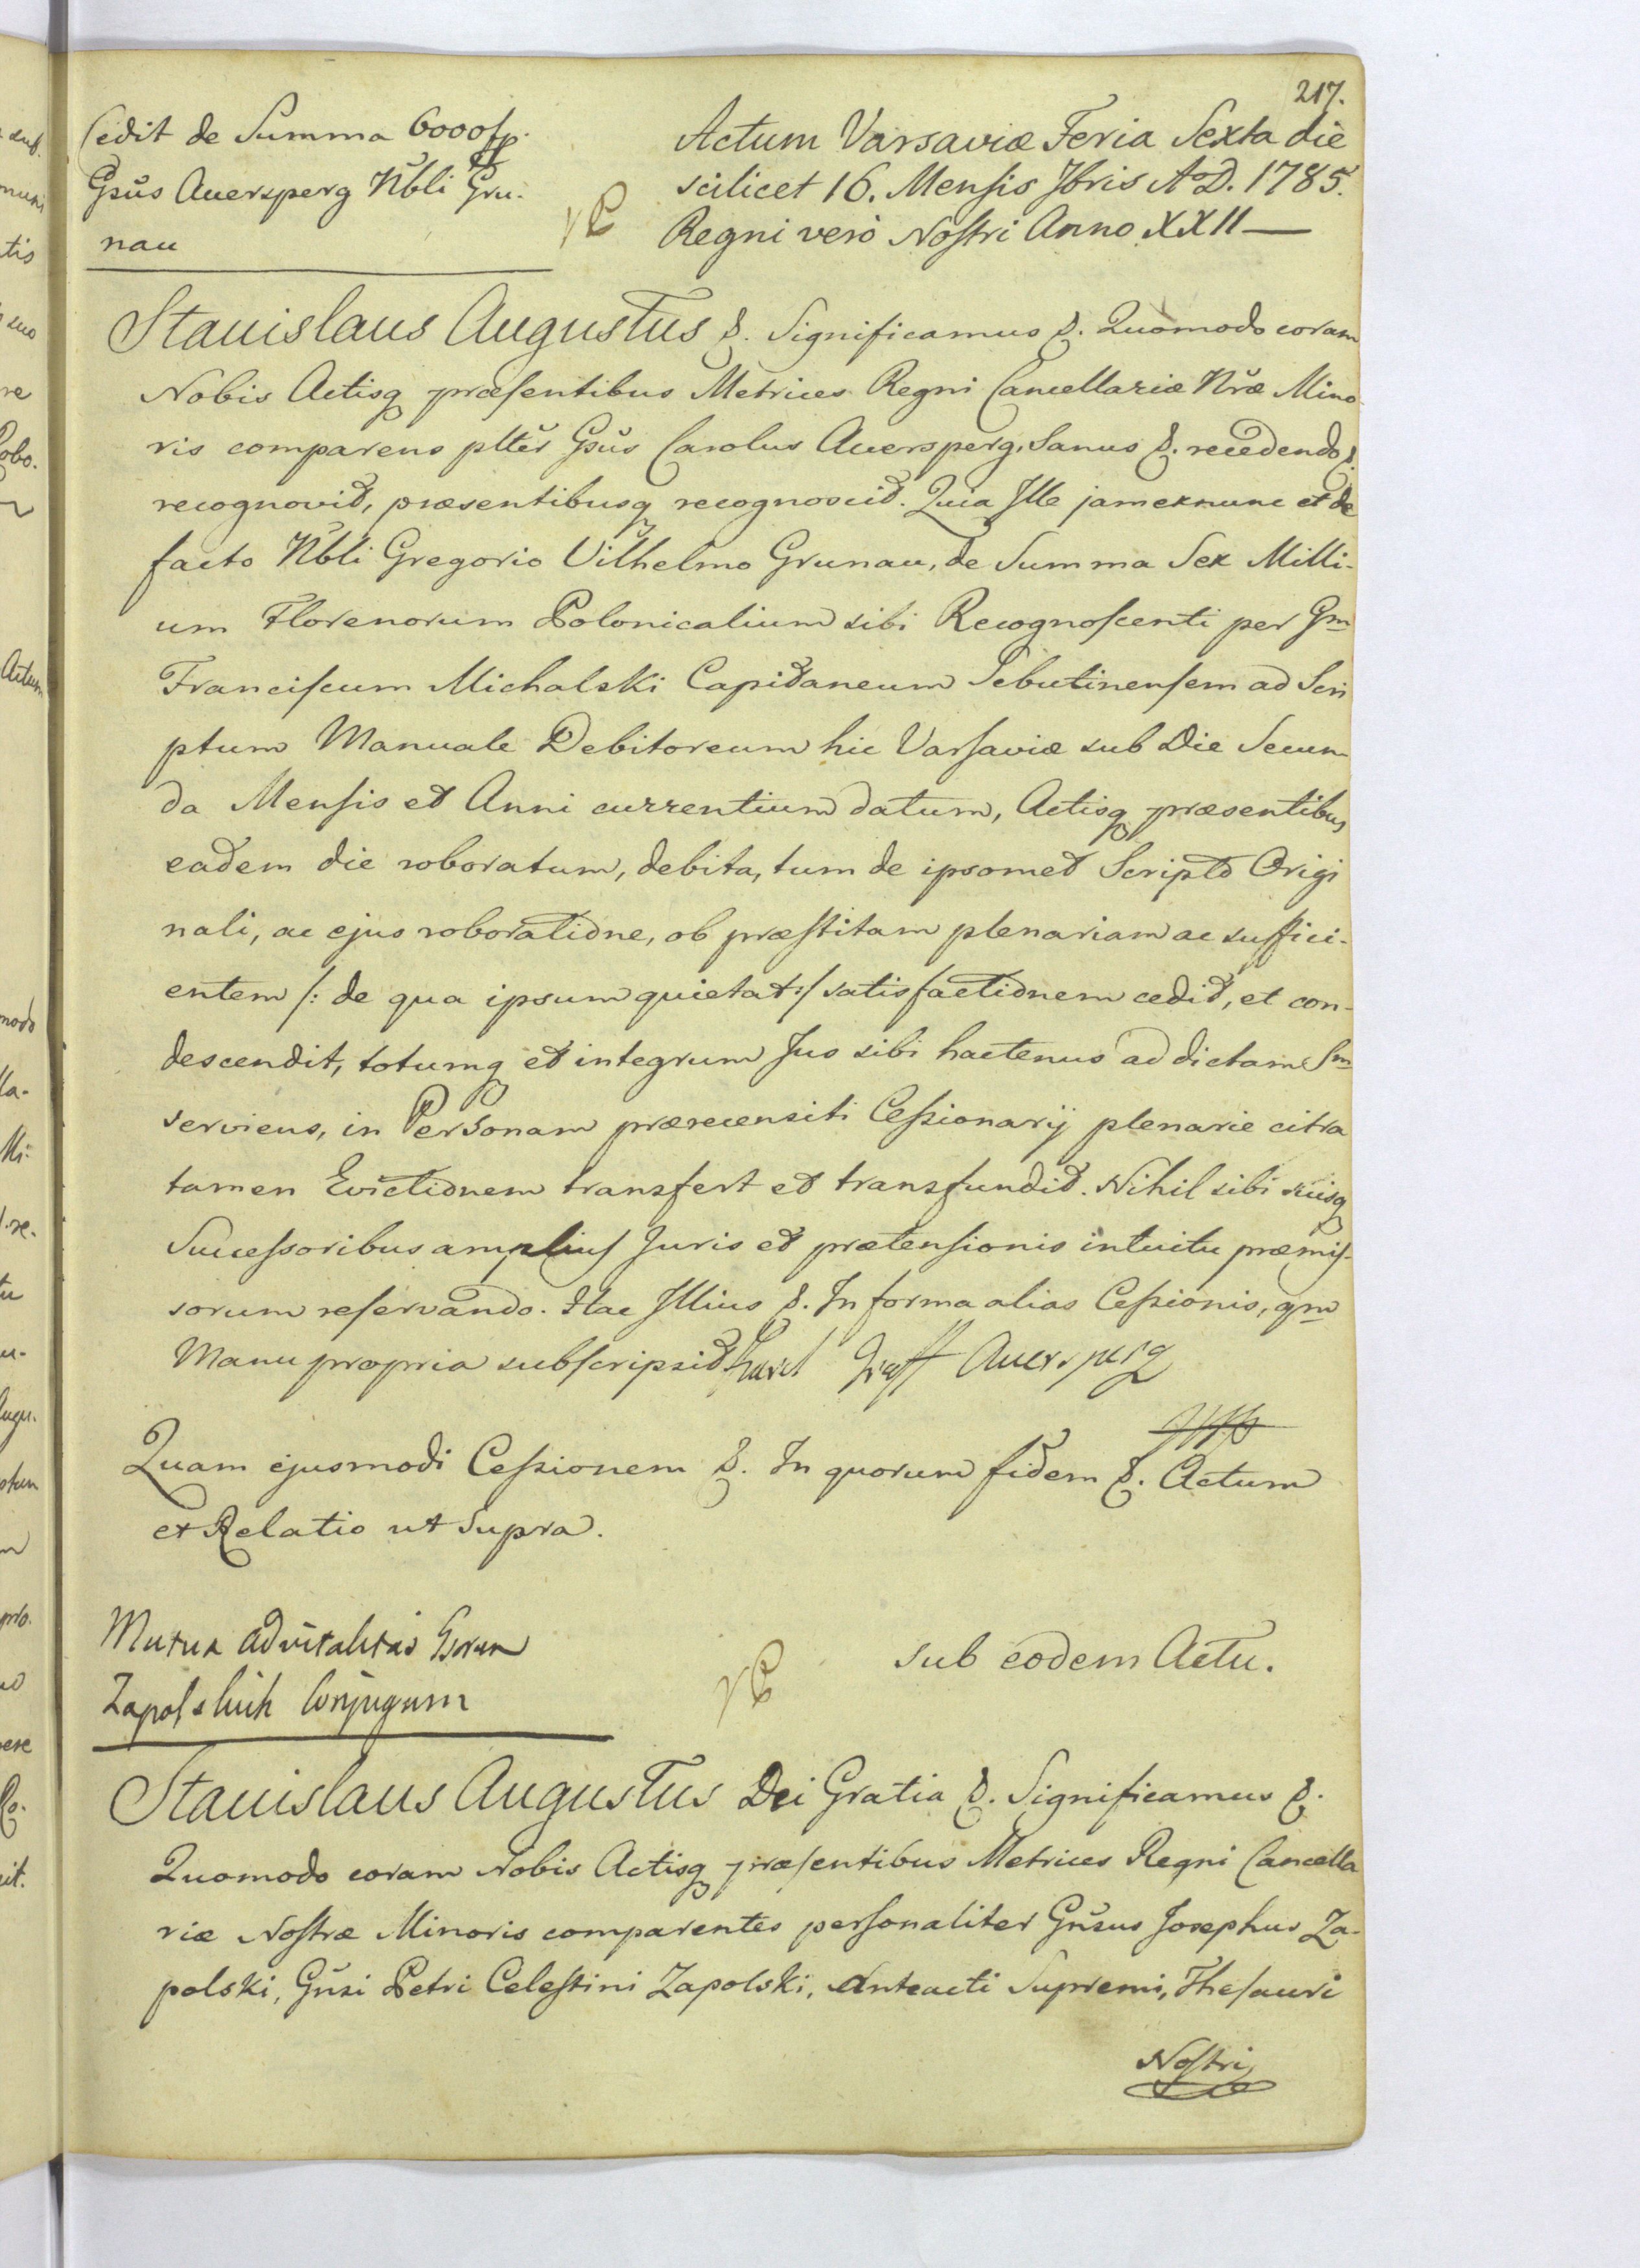 217.
Cedit de Summa 6000 fp.
Gsus Auersperg Nbli Gru-
nau
Actum Varsaviæ Feria Sexta die
scilicet 16. Mensis 7bris A°D. 1785.
Regni verò Nostri Anno XXII —
Stanislaus Augustus &. Significamus &. Quomodo coram
Nobis Actisq præsentibus Metrices Regni Cancellariæ Nræ Mino
ris comparens plter Gsus Carolus Auersperg, Sanus &. recedendo &.
recognovit, præsentibusq recognoscit. Quia Ille jamexnunc et de
facto Nbli Gregorio Vilhelmo Grunau, de Summa Sex Milli-
um Florenorum Polonicalium sibi Recognoscenti per Gm
Franciscum Michalski Capitaneum Tebutinensem ad Scri
ptum Manuale Debitoreum hic Varsaviæ sub Die Secun
da Mensis et Anni currentium datum, Actisq præsentibus
eadem die roboratum, debita, tum de ipsomet Scripto Origi
nali, ac ejus roboratione, ob præstitam plenariam ac suffici-
entem /: de qua ipsum quietat :/ satisfactionem cedit, et con-
descendit, totumq et integrum Jus sibi hactenus ad dictam Sm
serviens, in Personam prærecensiti Cessionarij plenarie citra
tamen Evictionem transfert et transfundit. Nihil sibi suisq
Successoribus amplius Juris et prætensionis intuitu præmis-
sorum reservando. Hac Illius &. In forma alias Cessionis, qm
Manu propria subscripsit Karl Graff Auersperg
Quam ejusmodi Cessionem &. In quorum fidem &. Actum
et Relatio ut supra.
Mutua advitalitas Gsorum
Zapolskich Conjugum
sub eodem Actu.
Stanislaus Augustus Dei Gratia &. Significamus &.
Quomodo coram Nobis Actisq præsentibus Metrices Regni Cancella
riæ Nostræ Minoris comparentes personaliter Gnsus Josephus Za-
polski, Gnsi Petri Celestini Zapolski, Anteacti Supremi, Thesauri
Nostri